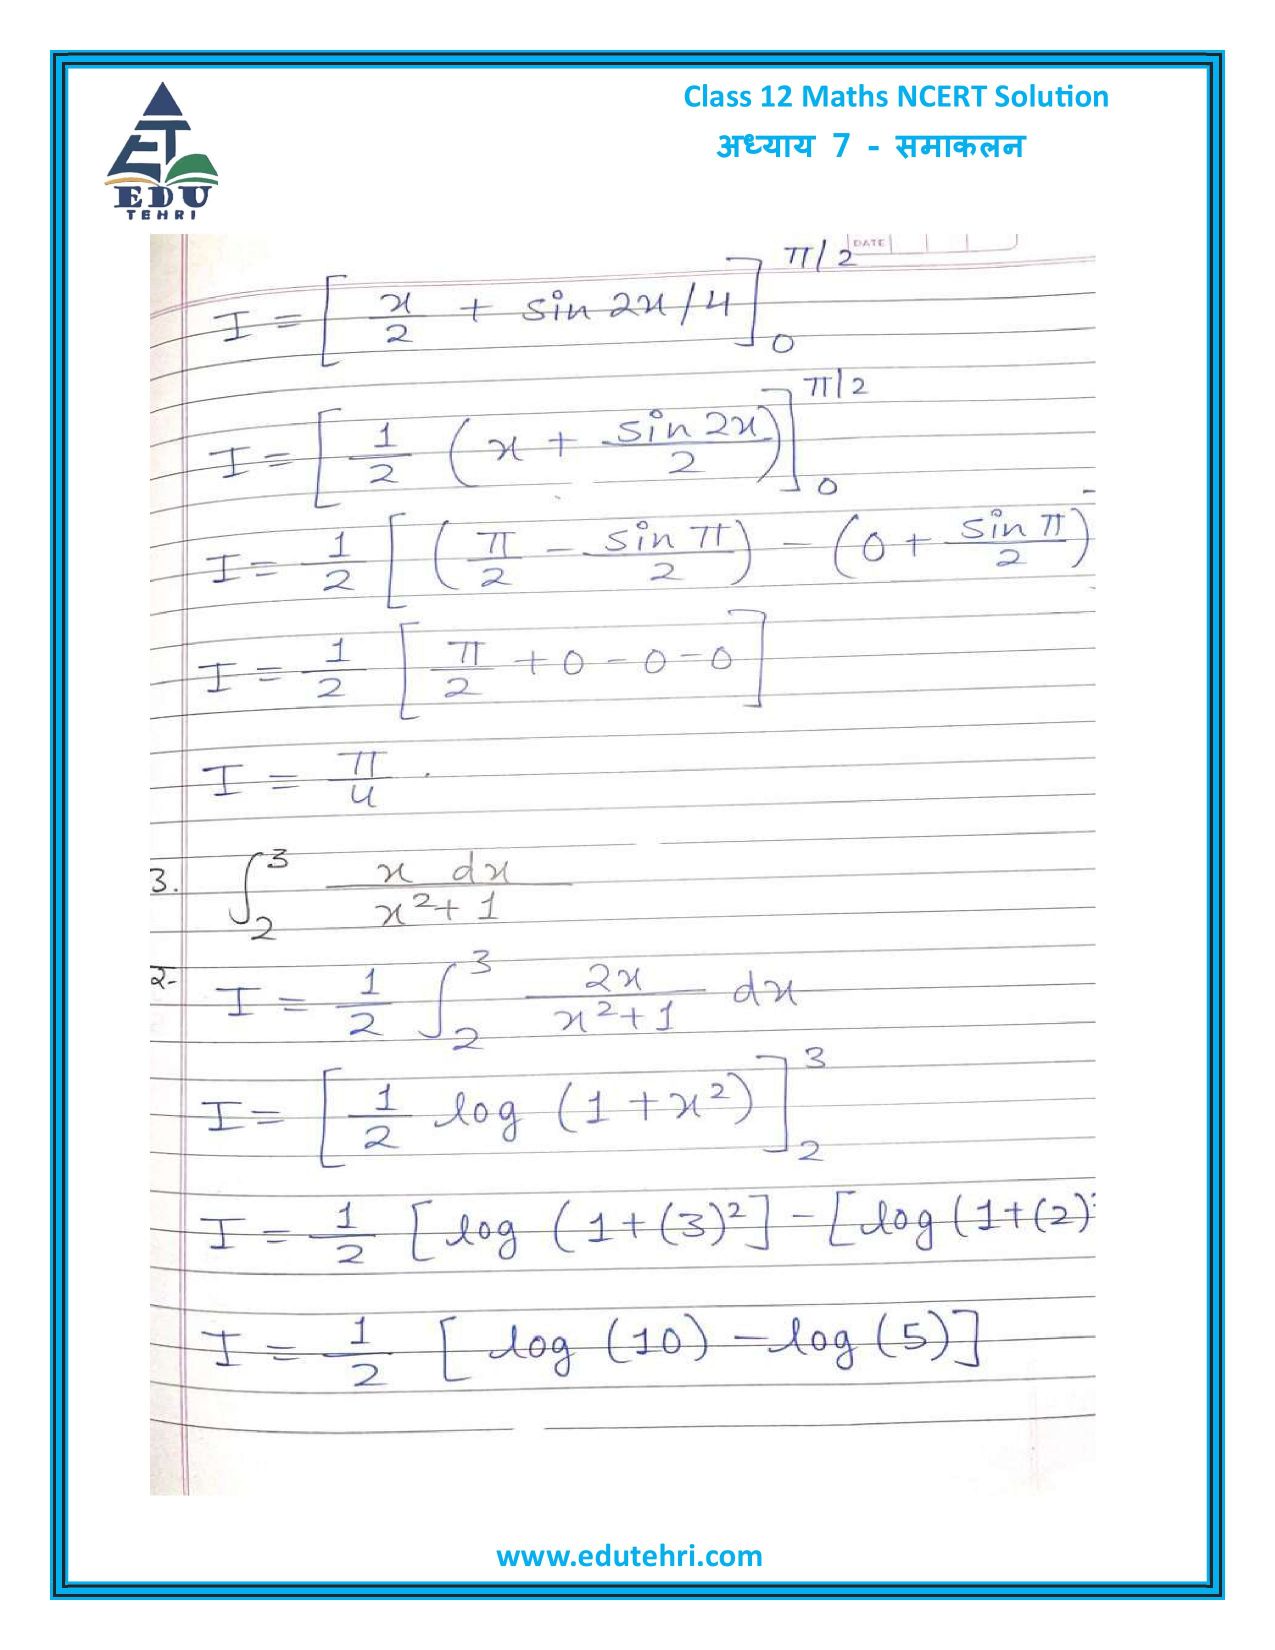 Class 12 Maths NCERT Solution
अध्याय 7 - समाकलन
EDU
TEHRI
DATE
I = [x/2 + sin 2x/4]₀^π/2
I = [1/2 (x + sin 2x/2)]₀^π/2
I = 1/2 [(π/2 - sin π/2) - (0 + sin π/2)
I = 1/2 [π/2 + 0 - 0 - 0]
I = π/4 .
3. ∫₂³ x dx / x² + 1
2- I = 1/2 ∫₂³ 2x/x² + 1 dx
I = [1/2 log (1 + x²)]₂³
I = 1/2 [log (1 + (3)²] - [log (1 + (2)
I = 1/2 [log (10) - log (5)]
www.edutehri.com